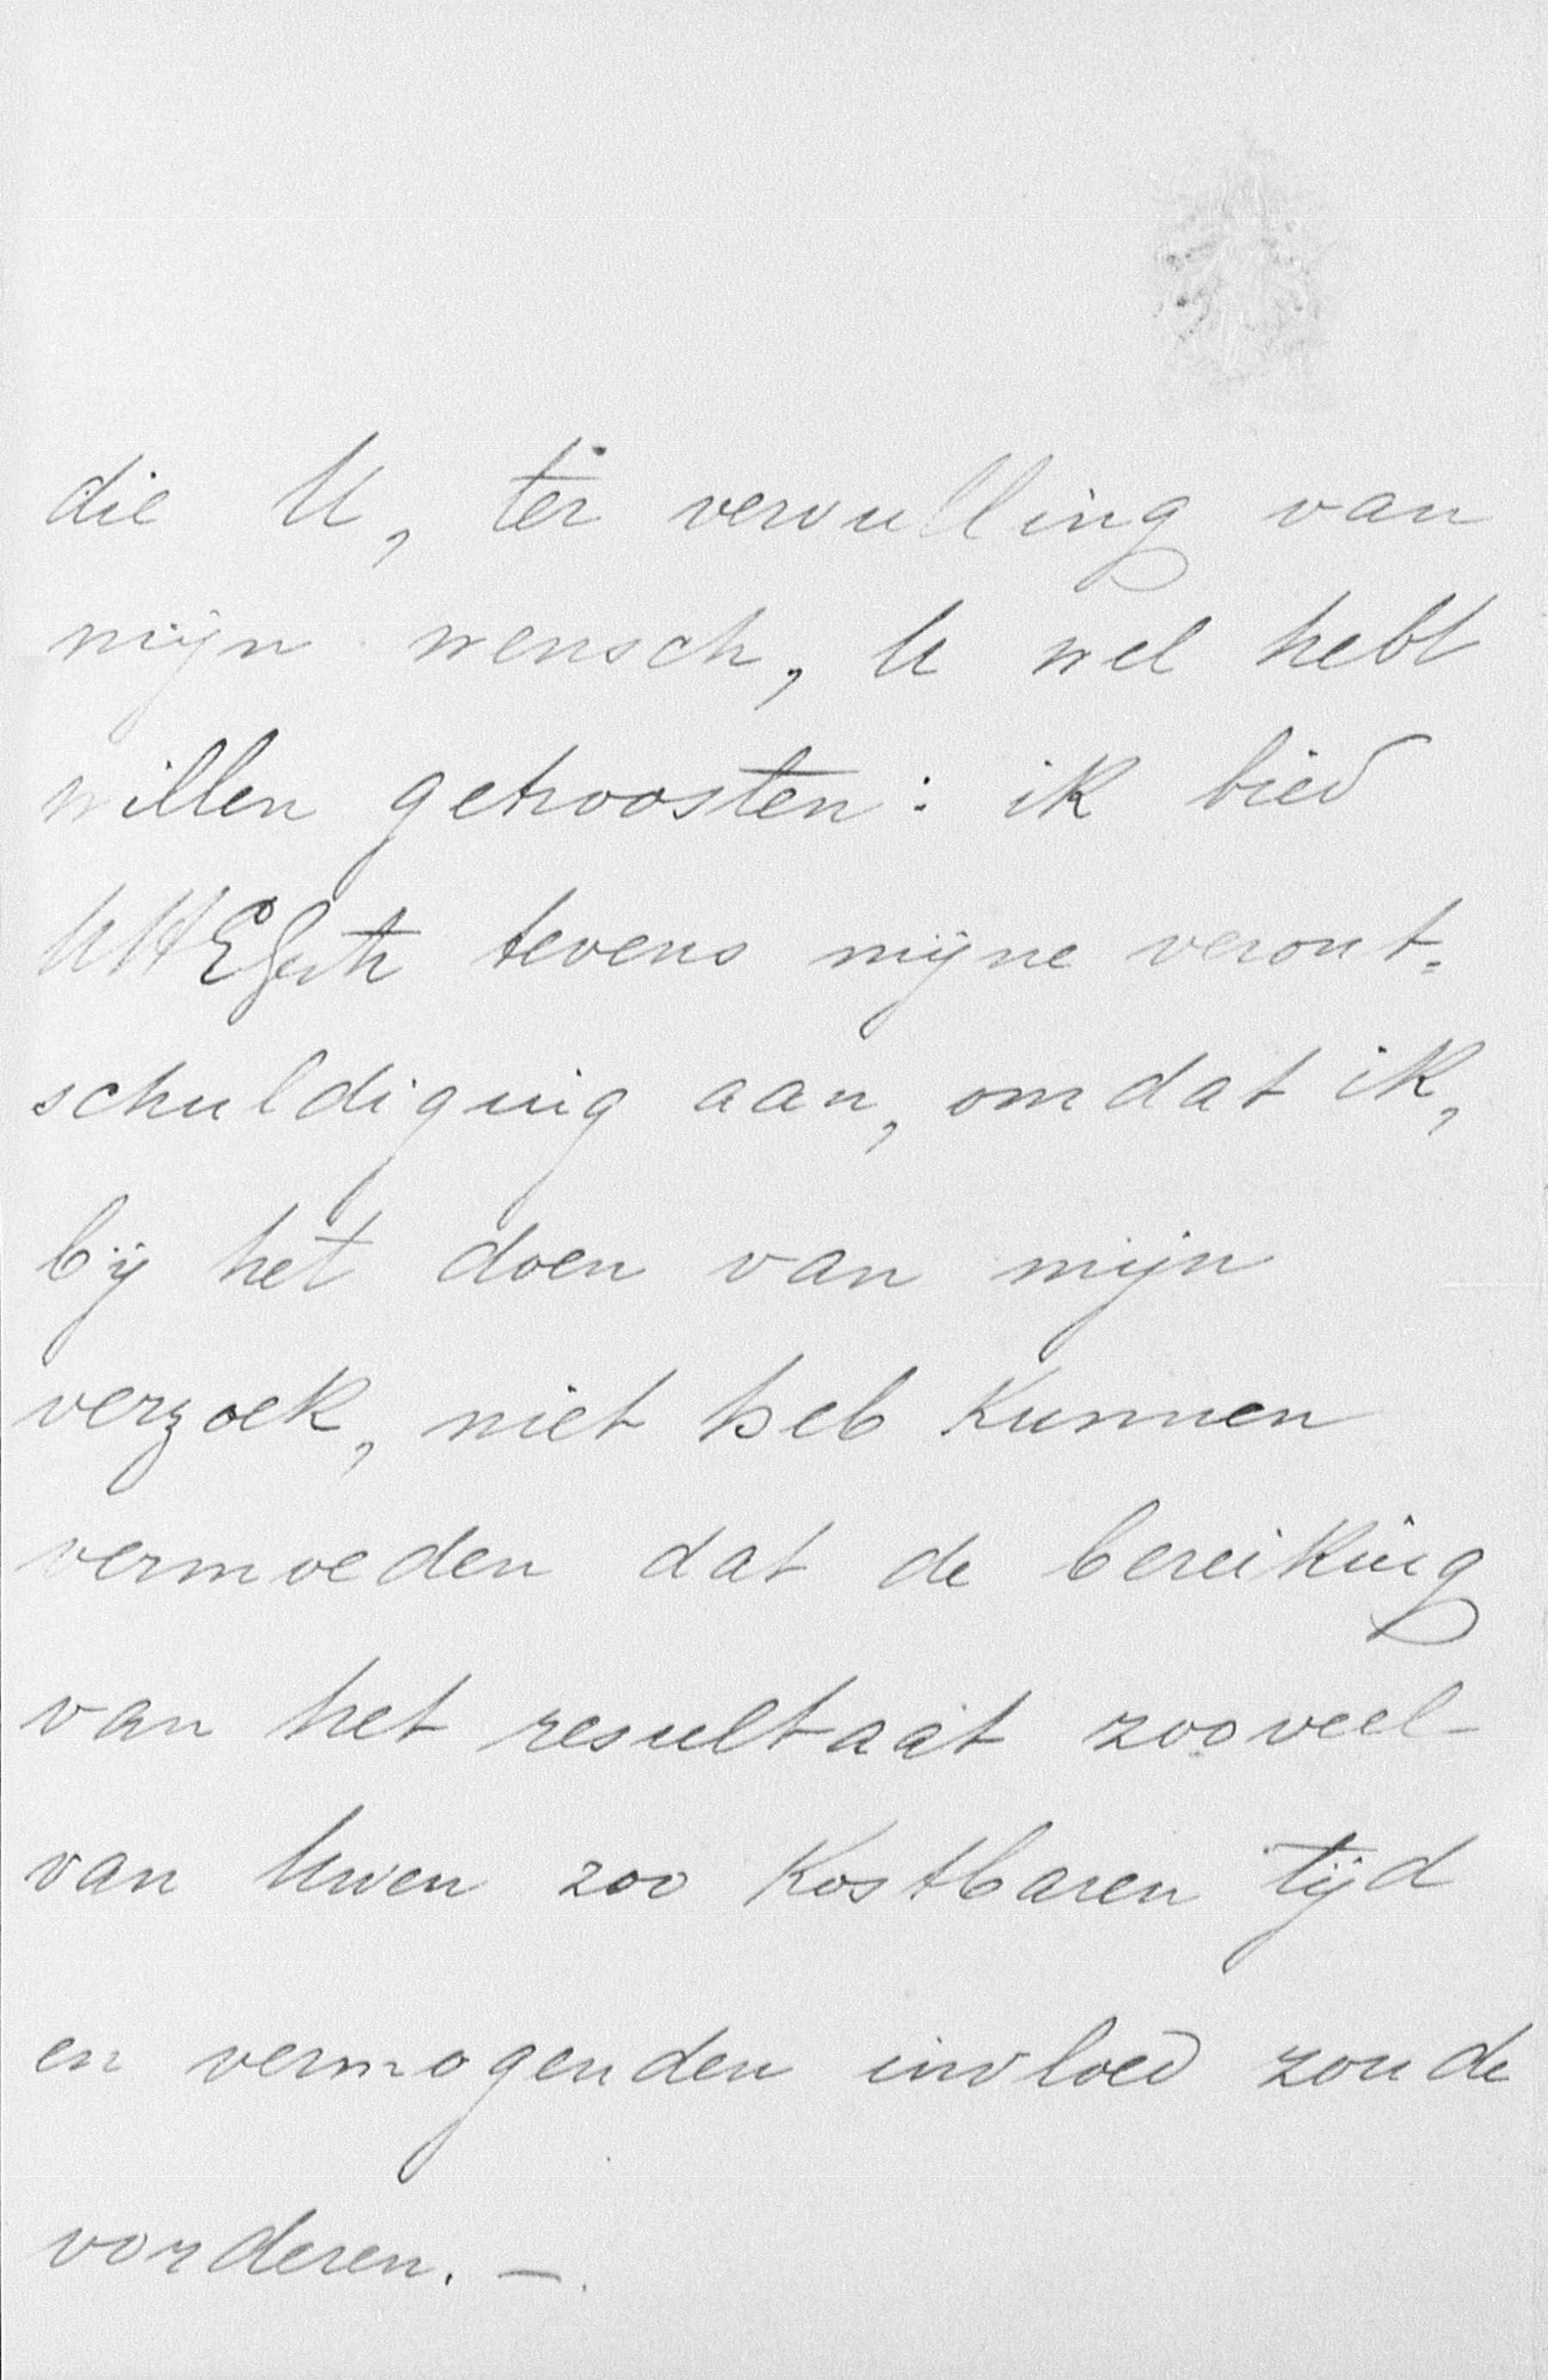 die U, ter vervulling van
mijn wensch, U wel hebt
willen getroosten: ik bied
UHEGestr tevens mijne veront=
schuldiging aan, omdat ik,
bij het doen van mijn
verzoek, niet heb kunnen
vermoeden dat de bereiking
van het resultaat zooveel
van Uwen zoo kostbaren tijd
en vermogenden invloed zoude
vorderen. —.